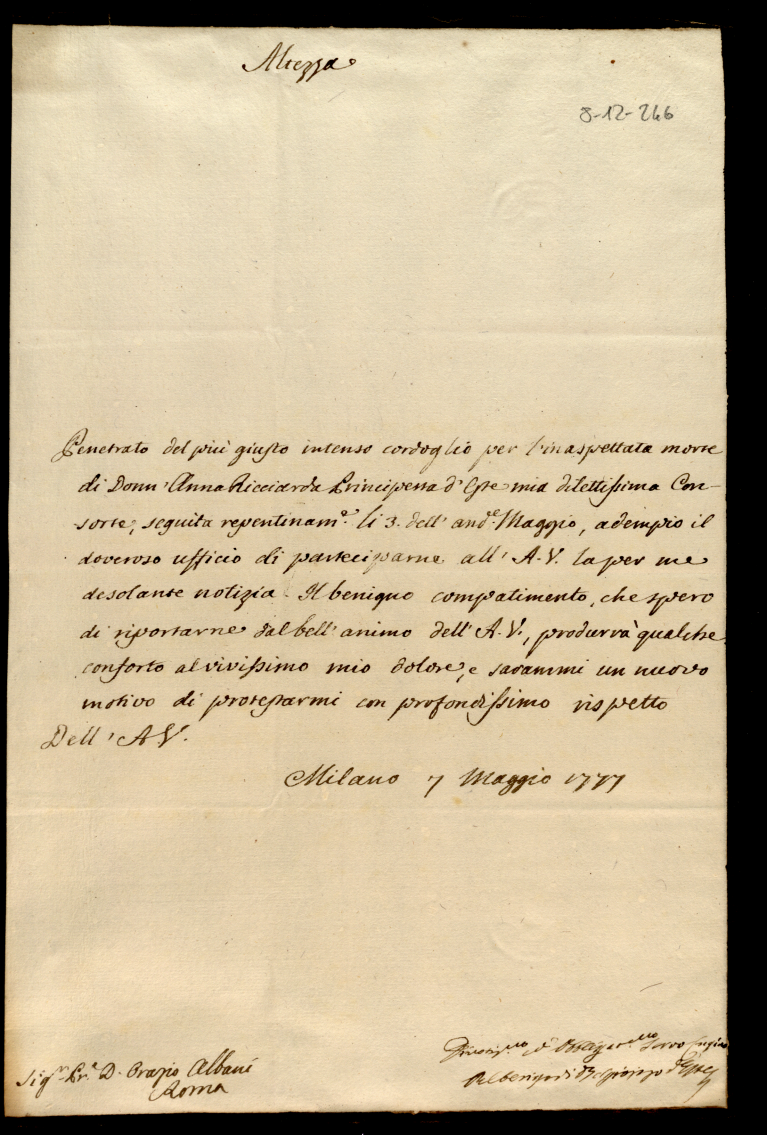 Altezza
8-12-246
Penetrato del più giusto intenso cordoglio per l'inaspettata morte
di Donn' Anna Ricciarda Principessa d'Este mia dilettissima Con-
sorte, seguita repentinam.e li 3. dell' and.e Maggio, adempio il
doveroso ufficio di parteciparne all' A.V. la per me
desolante notizia. Il benigno compatimento, che spero
di riportarne dal bell' animo dell' A.V., produrrà qualche
conforto al vivissimo mio dolore, e sarammi un nuovo
motivo di protestarmi con profondissimo rispetto
Dell' A.V.
Milano 7 Maggio 1777
Divotis.mo ed Obbligat.mo Servo Cugino
Alberigo di Belgioioso d'Este
Sig.r Pr.e D. Orazio Albani
Roma